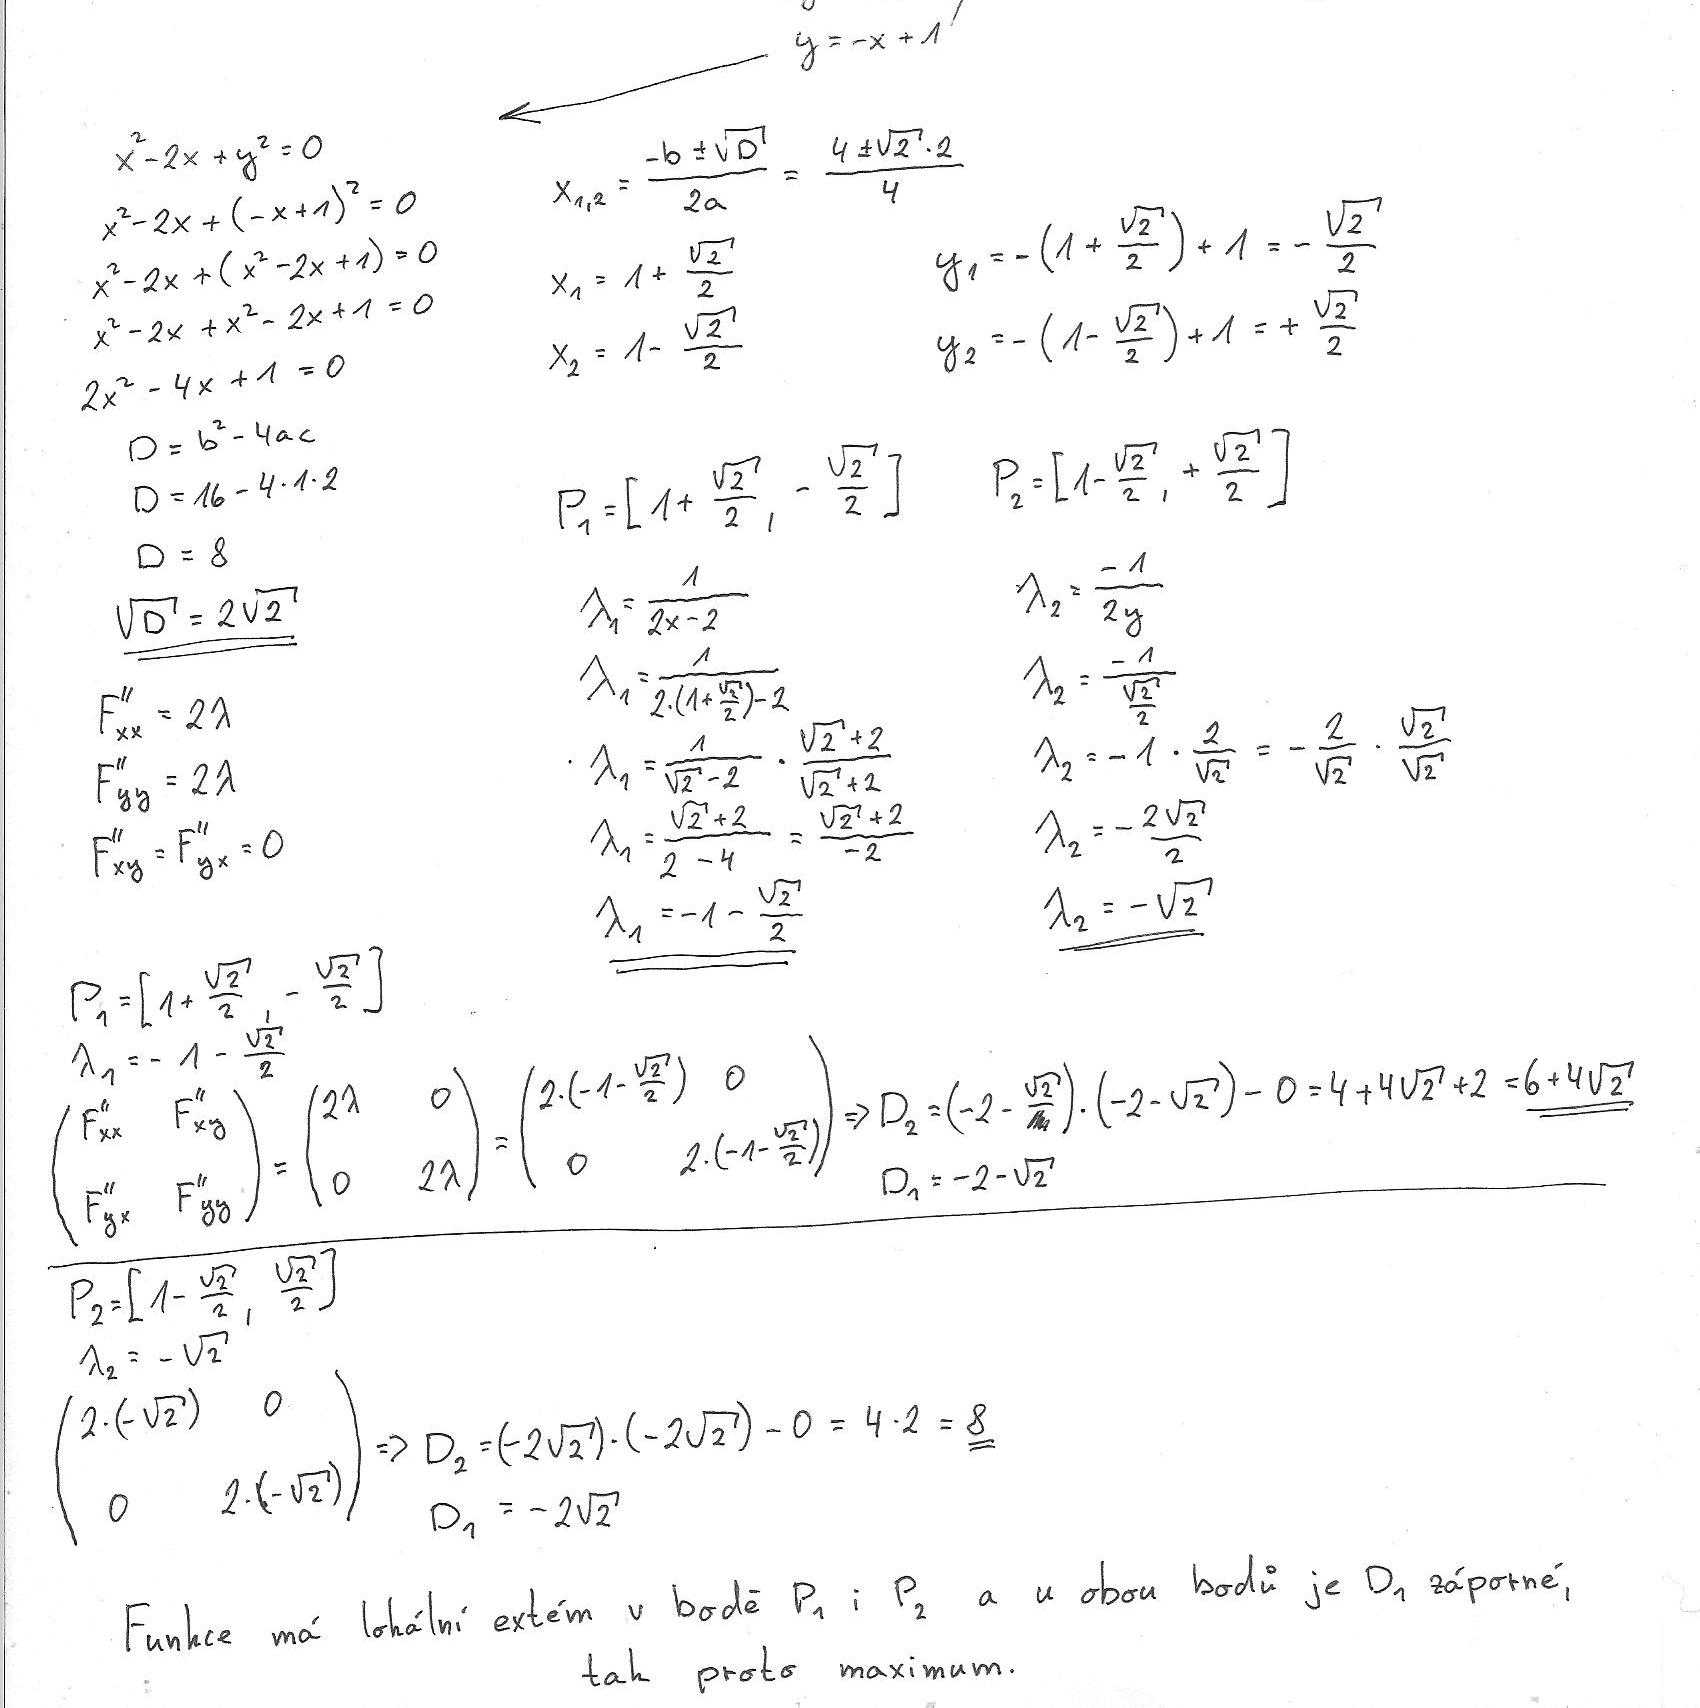 y = -x + 1
x² - 2x + y² = 0
x² - 2x + (-x+1)² = 0
x² - 2x + (x² - 2x + 1) = 0
x² - 2x + x² - 2x + 1 = 0
2x² - 4x + 1 = 0
D = b² - 4ac
D = 16 - 4·1·2
D = 8
√D = 2√2
F''xx = 2λ
F''yy = 2λ
F''xy = F''yx = 0
x₁,₂ = (-b ± √D)/(2a) = (4 ± √2·2)/4
x₁ = 1 + √2/2
x₂ = 1 - √2/2
y₁ = -(1 + √2/2) + 1 = -√2/2
y₂ = -(1 - √2/2) + 1 = +√2/2
P₁ = [1 + √2/2, -√2/2]
λ₁ = 1/(2x-2)
λ₁ = 1/(2·(1+√2/2)-2)
λ₁ = 1/(√2-2) · (√2+2)/(√2+2)
λ₁ = (√2+2)/(2-4) = (√2+2)/-2
λ₁ = -1 - √2/2
P₂ = [1 - √2/2, +√2/2]
λ₂ = -1/(2y)
λ₂ = -1/(√2/2)
λ₂ = -1 · 2/√2 = -2/√2 · √2/√2
λ₂ = -2√2/2
λ₂ = -√2
P₁ = [1 + √2/2, -√2/2]
λ₁ = -1 - √2/2
(F''xx F''xy; F''yx F''yy) = (2λ 0; 0 2λ) = (2·(-1-√2/2) 0; 0 2·(-1-√2/2)) ⇒ D₂ = (-2-√2)·(-2-√2) - 0 = 4 + 4√2 + 2 = 6 + 4√2
D₁ = -2 - √2
P₂ = [1 - √2/2, √2/2]
λ₂ = -√2
(2·(-√2) 0; 0 2·(-√2)) ⇒ D₂ = (-2√2)·(-2√2) - 0 = 4·2 = 8
D₁ = -2√2
Funkce má lokální extém v bodě P₁ i P₂ a u obou bodů je D₁ záporné,
tak proto maximum.